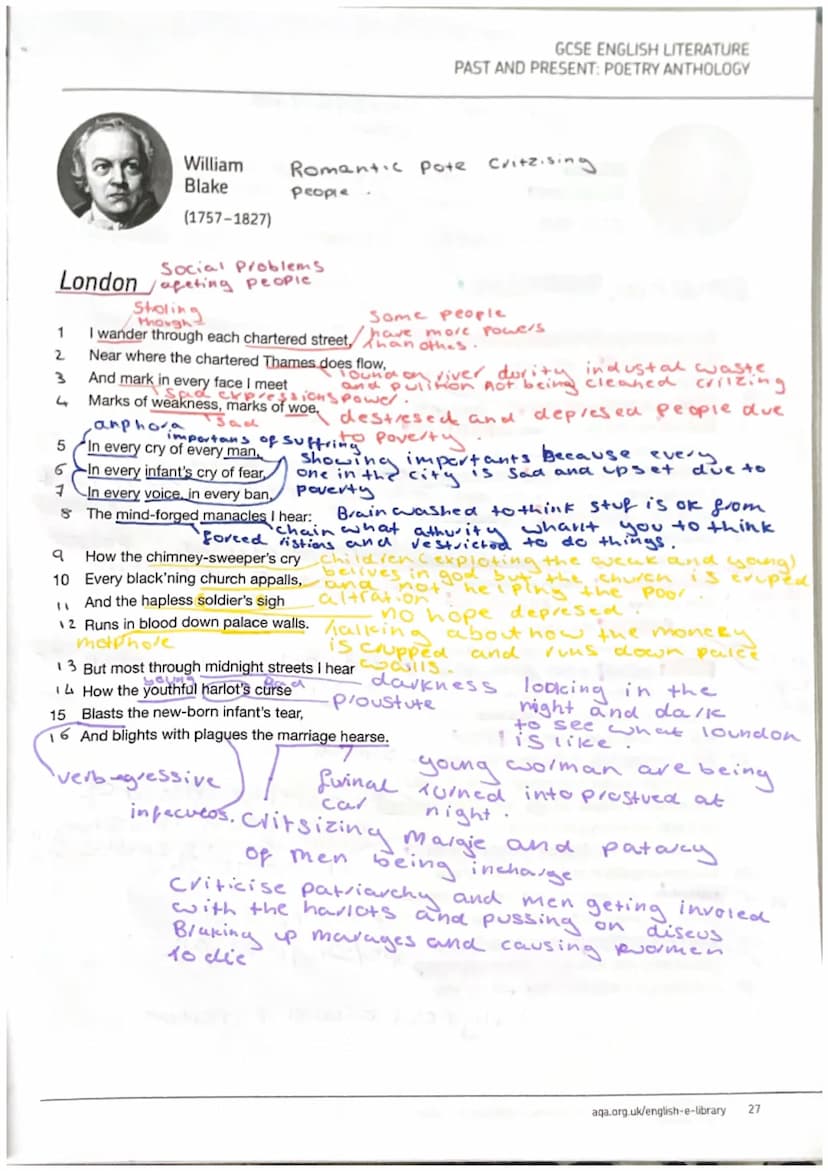 GCSE ENGLISH LITERATURE
PAST AND PRESENT: POETRY ANTHOLOGY
William
Blake
(1757–1827)
Romantic Pote Critzising
People .
London
Social Problems
afeting people
Stroling
thorght
Some people
have more powers
than othes .
1 I wander through each chartered street,
2 Near where the chartered Thames does flow,
lound on river durity industal waste
3 And mark in every face I meet
and pulition not being cleaned critizing
Sad expressions power .
4 Marks of weakness, marks of woe.
Sad
destresed and depresed people due
to poverty .
anphora
importans of suffring
5 In every cry of every man,
Showing importants because every
6 In every infant's cry of fear,
one in the city is sad and upset due to
7 In every voice, in every ban,
poverty
8 The mind-forged manacles I hear:
Brain washed to think stuf is ok from
chain what athurity whant you to think
forced ristions and restricted to do things .
9 How the chimney-sweeper's cry
children (exploting the weak and young)
10 Every black'ning church appalls,
belives in god but the church is crupted
and not helping the poor .
11 And the hapless soldier's sigh
altration
no hope depresed .
12 Runs in blood down palace walls.
talking about how the moncey
metphore
is crupped and runs down palce
walls .
13 But most through midnight streets I hear
being
Bad
darkness looking in the
14 How the youthful harlot's curse
night and dark
Proustute
15 Blasts the new-born infant's tear,
to see what loundon
is like .
16 And blights with plagues the marriage hearse.
verb egressive
infecueos.
fuinal
car
young worman are being
turned into prostued at
night .
Critsizing Margie and patarcy
of men being incharge
Criticise patriarchy and men geting involed
with the harlots and pussing on diseus
Braking up marages and causing women
to die
aqa.org.uk/english-e-library 27